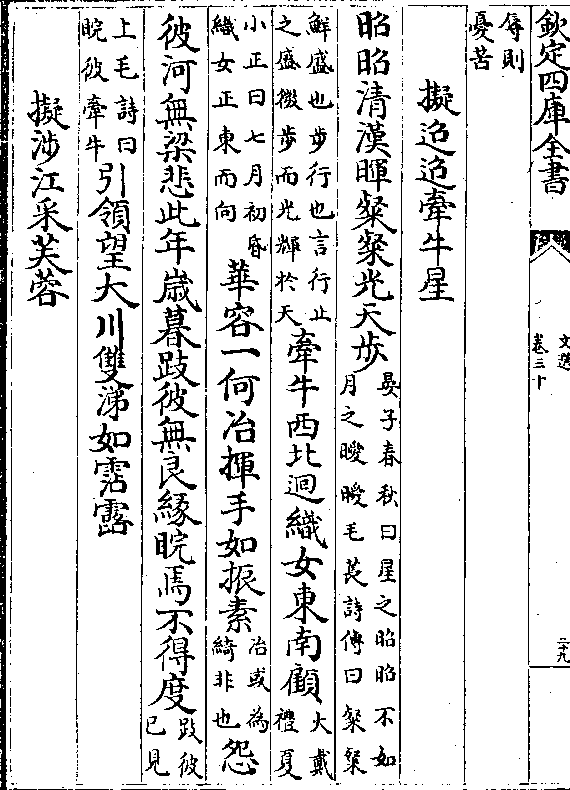 欽定四庫全書
文選
卷三十
二十九
辱則
憂苦
擬迢迢牽牛星
昭昭清漢暉粲粲光天步
晏子春秋曰星之昭昭不如
月之曖曖毛萇詩傳曰粲粲
鮮盛也步行也言行止
之盛微步而光輝於天
牽牛西北迴織女東南顧
大戴
禮夏
小正曰七月初昏
織女正東而向
華容一何冶揮手如振素
冶或為
綺非也
怨
彼河無梁悲此年歲暮跂彼無良緣睆焉不得度
跂彼
已見
上毛詩曰
睆彼牽牛
引領望大川雙涕如霑露
擬涉江采芙蓉